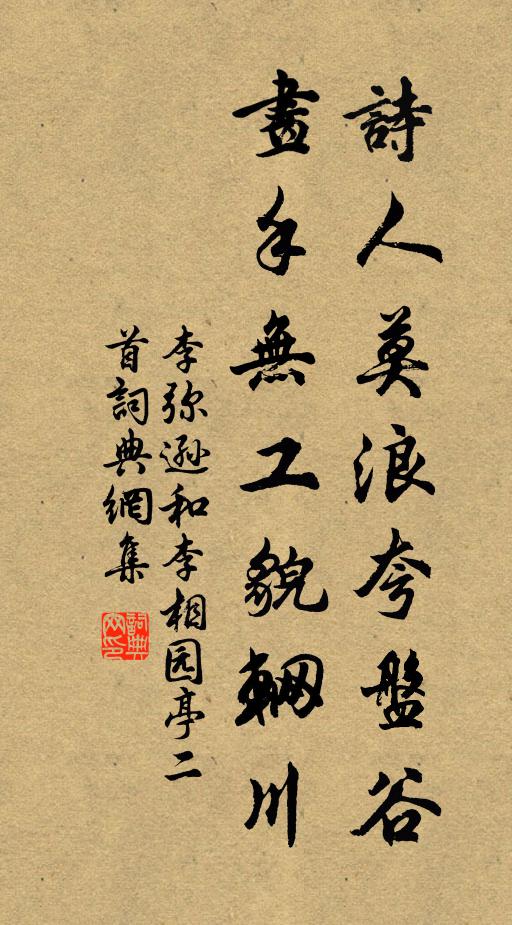 詩人莫浪夸盤谷
畫手無工貌輞川
李弥遜和李相园亭二
首詞典網集
詞典網印